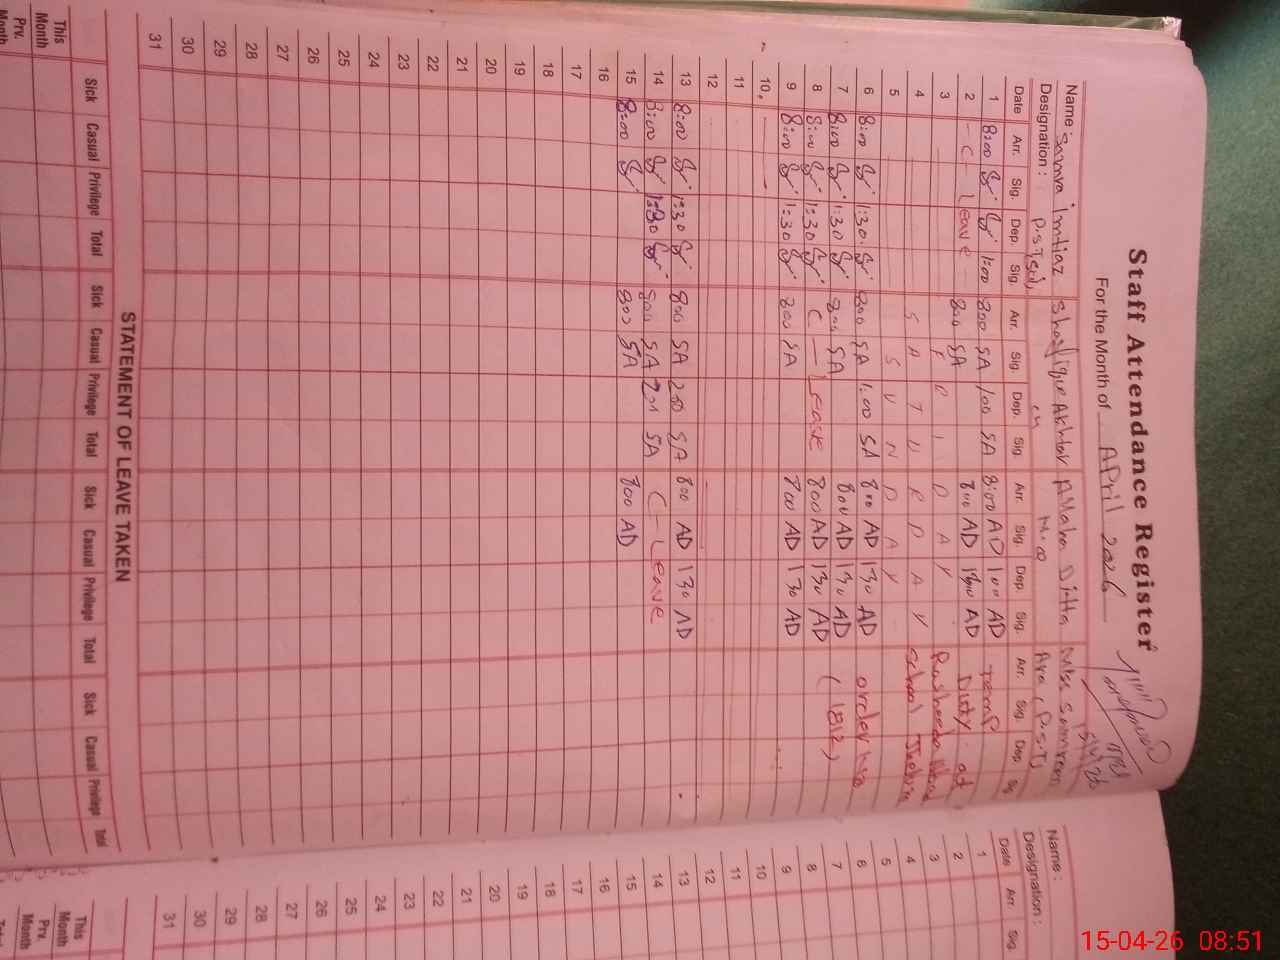 Staff Attendance Register
For the Month of April 2026
15/4/26
Name: Samra Imtiaz Shafique Akhtar Allaha Ditta Miss Samreen
Designation: P.S.T
Date Arr. Sig. Dep. Sig. Arr. Sig. Dep. Sig. Arr. Sig. Dep. Sig. Arr. Sig. Dep. Sig.
1 8:00 1:00 800 SA 100 SA 8:00 AD 100 AD Temp
2 C Leave 800 SA 800 AD AD Duty at
3 F R I D A Y Rasheeda
4 S A T U R D A Y School
5 S U N D A Y
6 8:00 1:30 800 SA 1:00 SA 800 AD 130 AD order no
7 8:00 1:30 800 SA 800 AD 130 AD (1812)
8 8:00 1:30 C — Leave 800 AD 130 AD
9 8:00 1:30 800 SA 800 AD 130 AD
10
11
12
13 8:00 1:30 800 SA 200 SA 800 AD 130 AD
14 8:00 1:30 800 SA 200 SA C — Leave
15 8:00 800 SA 800 AD
16
17
18
19
20
21
22
23
24
25
26
27
28
29
30
31
STATEMENT OF LEAVE TAKEN
Sick Casual Privilege Total Sick Casual Privilege Total Sick Casual Privilege Total Sick Casual Privilege Total
This Month
Prv. Month
Name :
Designation :
Date Arr. Sig.
1
2
3
4
5
6
7
8
9
10
11
12
13
14
15
16
17
18
19
20
21
22
23
24
25
26
27
28
29
30
31
This Month
Prv. Month
Total
15-04-26 08:51